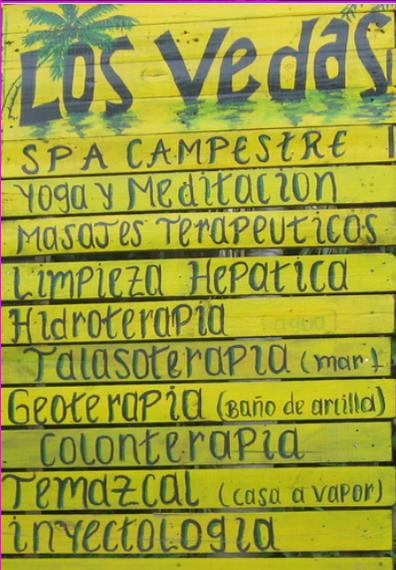 Los Vedas
SPA CAMPESTRE
Yoga y Meditacion
Masajes Terapeuticos
Limpieza Hepatica
Hidroterapia
Talasoterapia (mar)
Geoterapia (Baño de arcilla)
Colonterapia
Temazcal (casa a vapor)
inyectologia